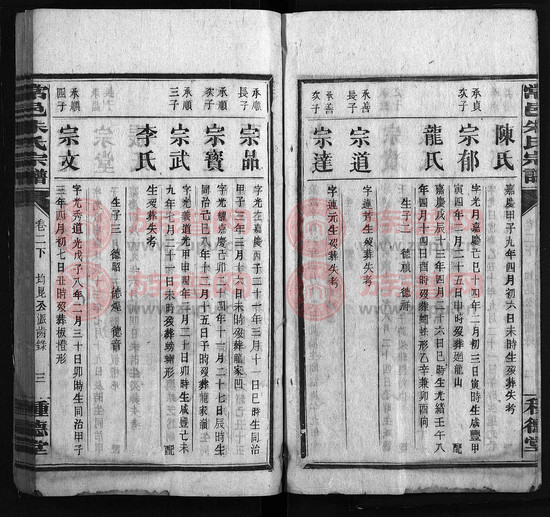 常邑朱氏宗譜
種德堂
陳氏
嘉慶甲子九年四月初六日未時生歿葬失考
承貞次子
宗郁
字光月嘉慶己巳十四年二月初三日寅時生咸豐甲
寅四年二月二十五日申時歿葬迴龍山
配
龍氏
嘉慶戊辰十三年四月二十六日巳時生光緒壬午八
年四月十四日酉時歿葬蜘蛛形乙辛兼卯酉向
生子二 德禎
承善長子
宗道
字連
生歿葬失考
承善次子
宗達
字連元生歿葬失考
常邑朱氏宗譜
卷二下
三
種德堂
承順長子
宗品
字光在嘉慶丙子二十一年三月十一日生同治
甲子三年三月十六日未時歿葬
承順次子
宗寶
字光
同治己巳八年十二月十五日子時歿葬龍家
承順三子
宗武
字光義道光甲申四年二月二十日卯時生咸豐己未
九年七月二十一日未時歿葬螃蟹形
配
李氏
生歿葬失考
生子三 德昭 德煌 德音
承順四子
宗文
字光秀道光戊子八年二月三十日卯時生同治甲子
三年四月初七日丑時歿葬板櫈形